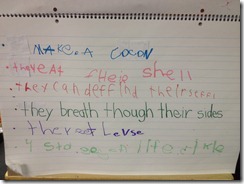 MAKE A COCON
• they eat their shell
• they can deffind theirselfs
• they breath though their sides
• they eat Levse
• 4 stages in life